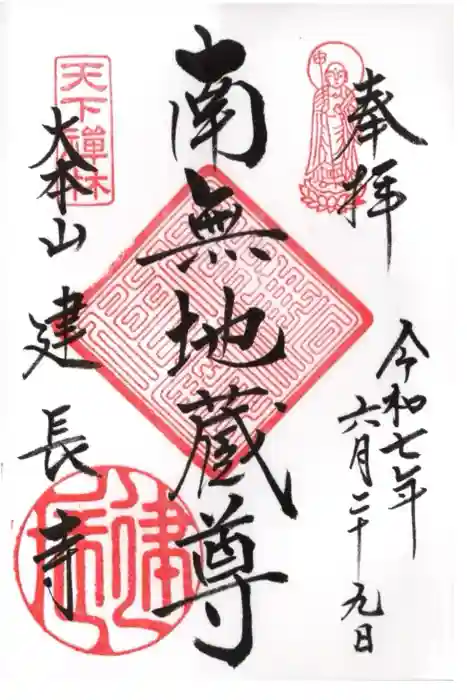 奉拝
令和七年
六月二十九日
南無地蔵尊
天下禅林
大本山
建長寺
建長